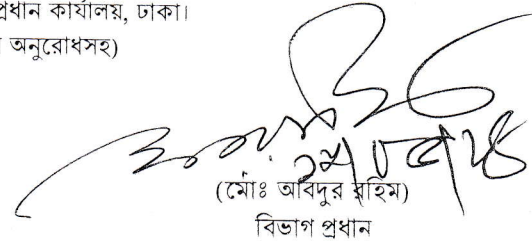 প্রধান কার্যালয়, ঢাকা।
অনুরোধসহ)
(মোঃ আবিদুর রহিম)
বিভাগ প্রধান